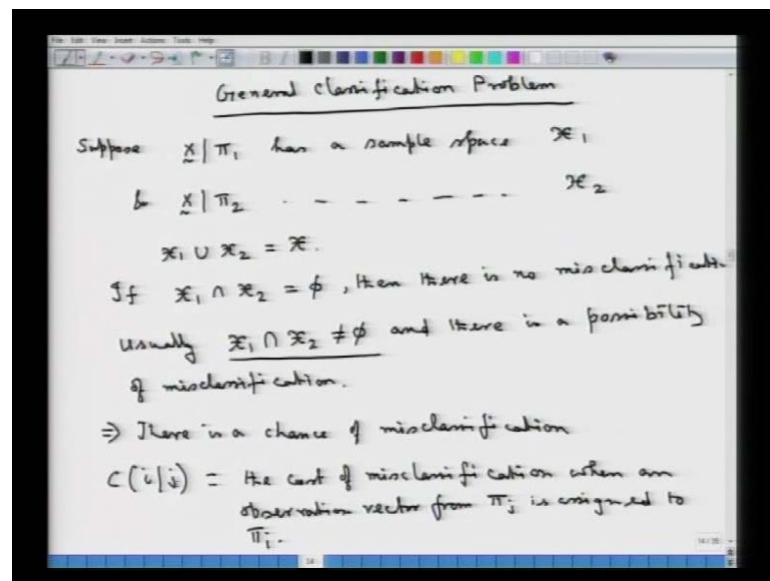 File Edit View Insert Actions Tools Help
General Classification Problem
Suppose x̰ | π₁ has a sample space 𝒳₁
& x̰ | π₂ - - - - - - - . 𝒳₂
𝒳₁ ∪ 𝒳₂ = 𝒳.
If 𝒳₁ ∩ 𝒳₂ = ϕ, then there is no misclassification
usually 𝒳₁ ∩ 𝒳₂ ≠ ϕ and there is a possibility
of misclassification.
⇒ There is a chance of misclassification
C(i|j) = the cost of misclassification when an
observation vector from πⱼ is assigned to
πᵢ.
14/35
14